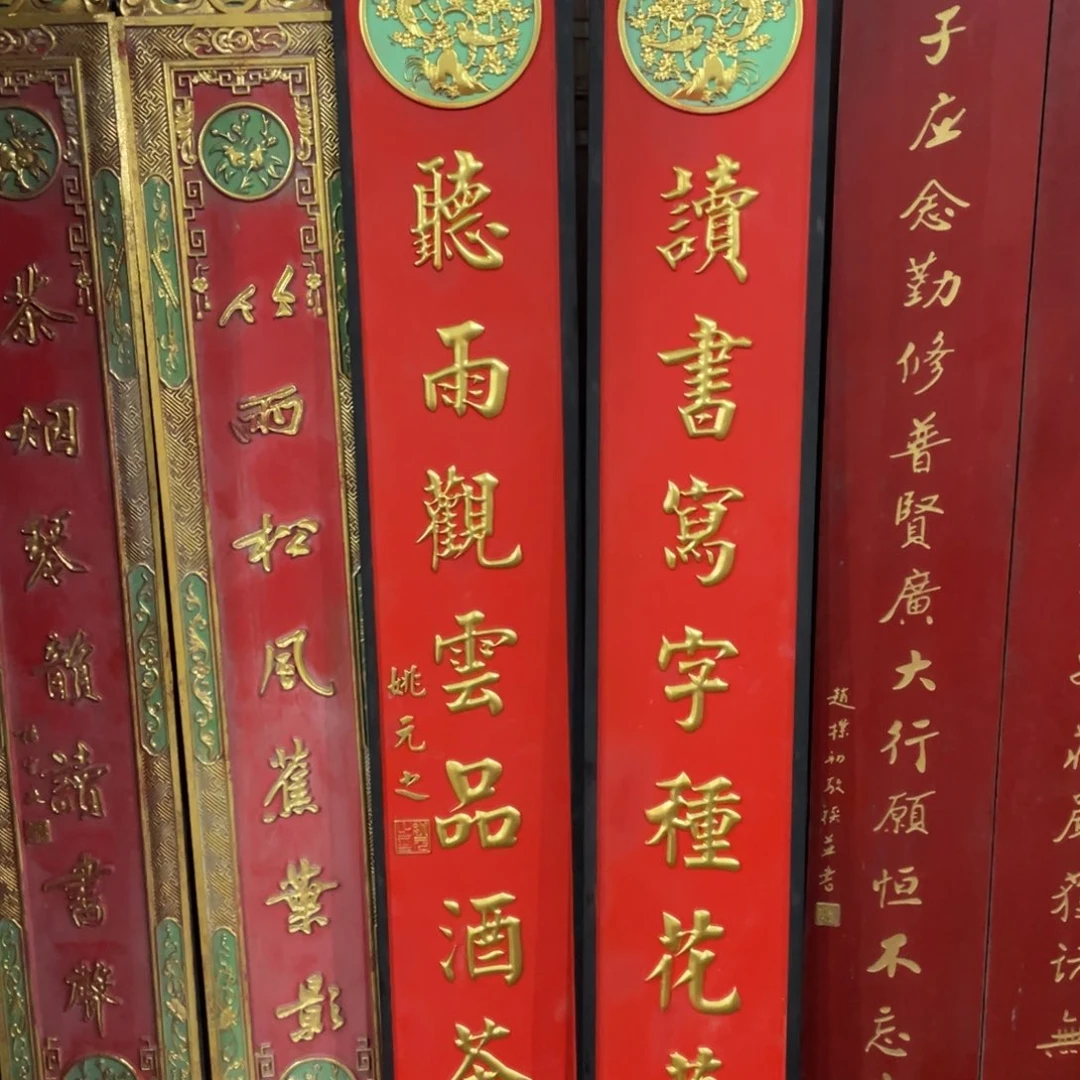 無
子应念勤修普賢廣大行願恒不忘
趙樸初敬撰並書
讀書寫字種花草
聽雨觀雲品酒茶
姚元之
竹雨松風蕉葉影
茶烟琴韻讀書聲